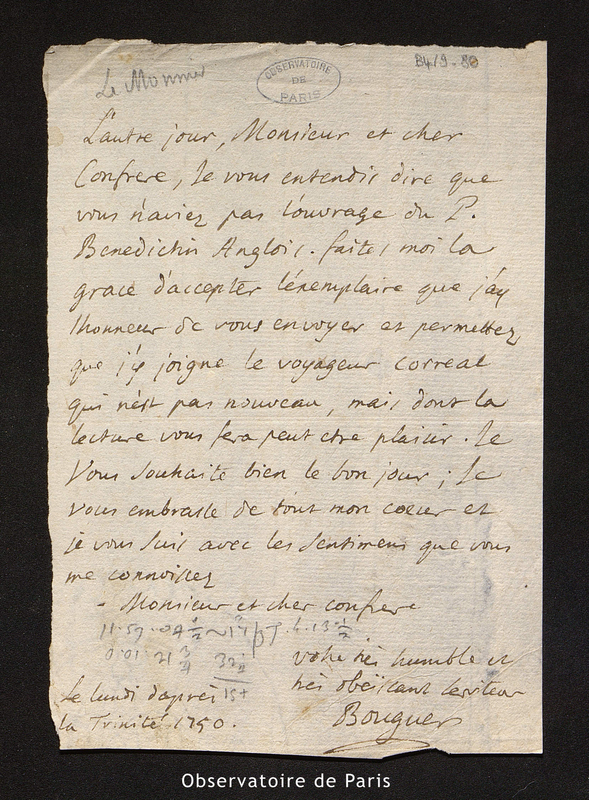 Le Monnier
OBSERVATOIRE
DE
PARIS
B4/9-80
L'autre jour, Monsieur et cher
Confrere, Je vous entendis dire que
vous n'aviez pas l'ouvrage du P.
Benedictin Anglois. faites moi la
grace d'accepter l'exemplaire que j'ay
lhonneur de vous envoyer et permettez
que j'y joigne le voyageur Correal
qui n'est pas nouveau, mais dont la
lecture vous fera peut etre plaisir. Je
Vous souhaite bien le bon jour ; Je
vous embrasse de tout mon coeur et
je vous suis avec les sentimens que vous
me connoissez
- Monsieur et cher confrere
11.59.04 1/2
0.01 21 3/4
votre très humble et
très obéissant serviteur
Le lundi d'après
la Trinité 1750.
Bouguer
Observatoire de Paris